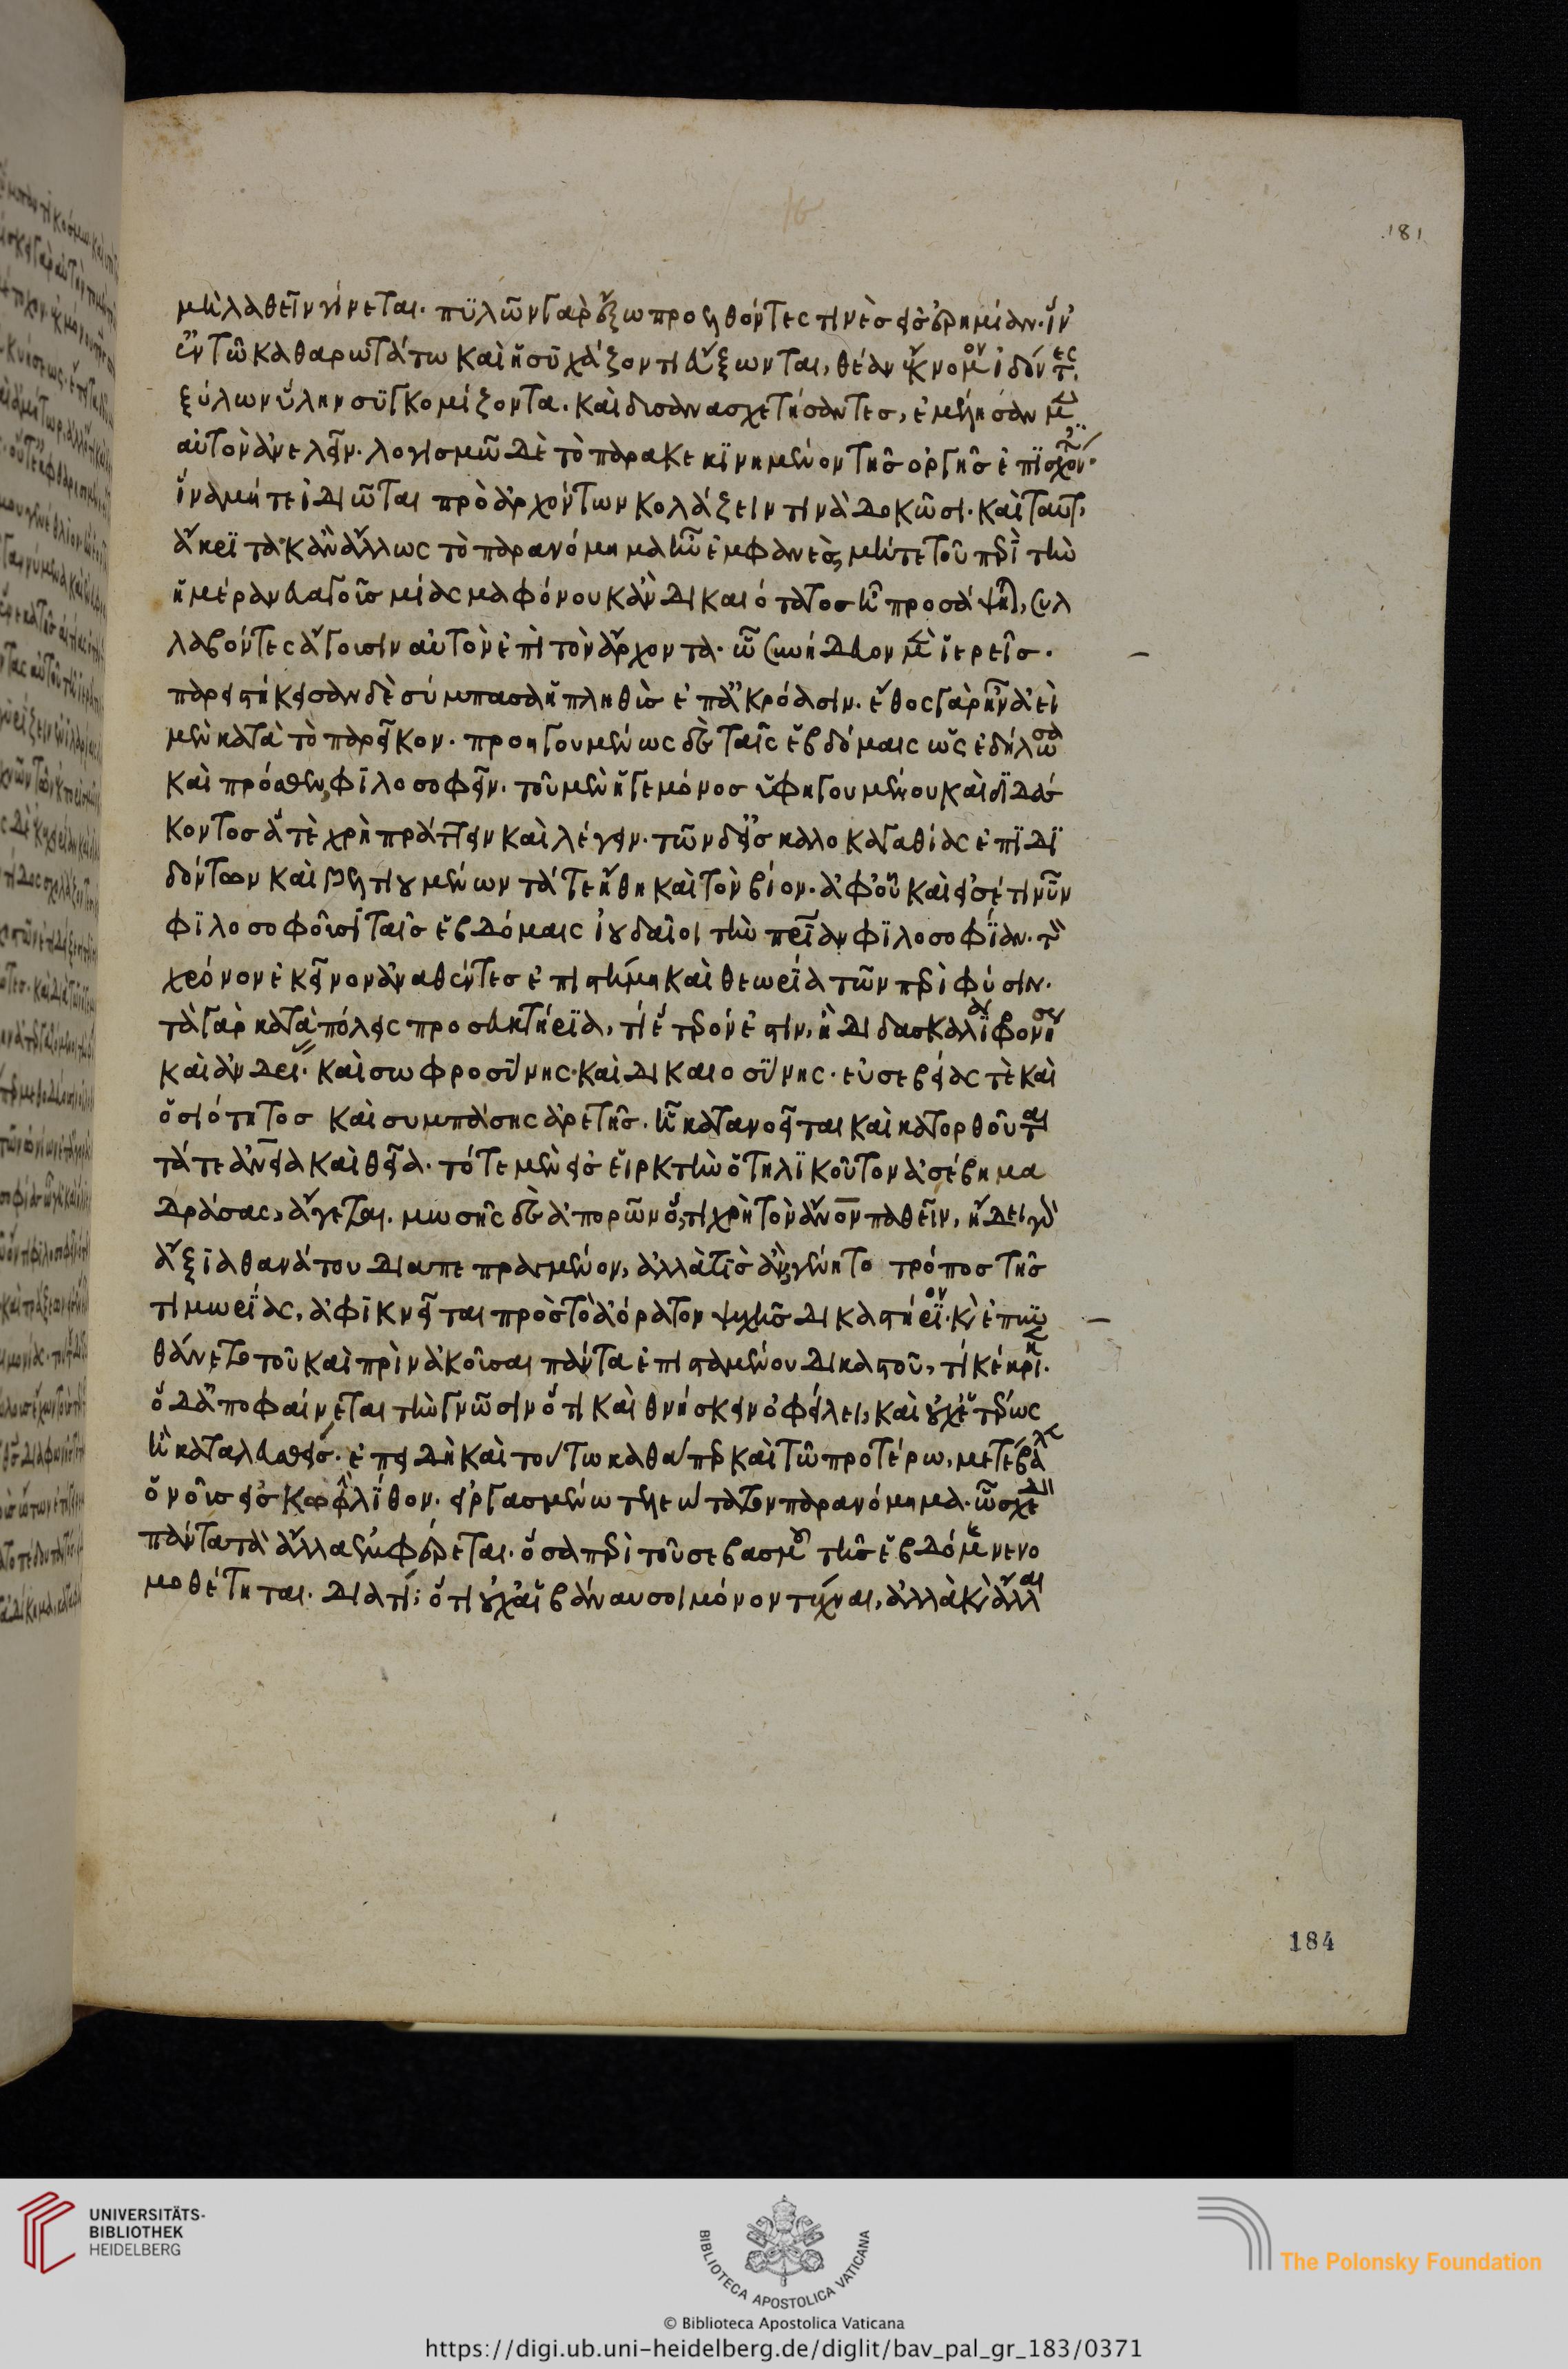 μὴ λαθεῖν γίνεται· πυλῶν γὰρ ἔξω προελθόντες τινὲς εἰς ἐρημίαν· ἵν'
ἐν τῶ καθαρωτάτω καὶ ἡσυχάζοντι εὔξωνται, θέαν ἔκνομον ἰδόντες
ξύλων ὕλην συγκομίζοντα. καὶ δυσανασχετήσαντες, ἐμέλλησαν μὲν
αὐτὸν ἀνελεῖν. λογισμῶ δὲ τὸ παρακεκινημένον τῆς ὀργῆς ἐπισχόντες·
ἵνα μήτε ἰδιῶται πρὸ ἀρχόντων κολάζειν τινὰ δοκῶσι. καὶ ταῦτ'
ἄκριτα κἂν ἄλλως τὸ παρανόμημα ἦν ἐμφανὲς, μήτε τοῦ περὶ τὴν
ἡμέραν εὐαγοῦς μίασμα φόνου κἂν δικαιότατος ἦ προσάψηται, συλ
λαβόντες ἄγουσιν αὐτὸν ἐπὶ τὸν ἄρχοντα. ὧ συνήδρευον μὲν ἱερεῖς.
παρειστήκεισαν δὲ σύμπασα ἡ πληθὺς ἐπ' ἀκρόασιν. ἔθος γὰρ ἦν ἀεὶ
μὲν κατὰ τὸ παρεῖκον. προηγουμένως δὲ ταῖς ἑβδόμαις ὡς ἐδήλωσα
καὶ πρόσθεν, φιλοσοφεῖν. τοῦ μὲν ἡγεμόνος ὑφηγουμένου καὶ διδάσ
κοντος ἅττε χρὴ πράττειν καὶ λέγειν. τῶν δ' εἰς καλοκαγαθίας ἐπιδι
δόντων καὶ βελτιουμένων τά τε ἤθη καὶ τὸν βίον. ἀφ' οὗ καὶ εἰσέτι νῦν
φιλοσοφοῦσι ταῖς ἑβδόμαις ἰουδαῖοι τὴν πάτριον φιλοσοφίαν. τὸν
χρόνον ἐκεῖνον ἀναθέντες ἐπιστήμη καὶ θεωρία τῶν περὶ φύσιν.
τὰ γὰρ κατὰ πόλεις προσευκτήρια, τί ἕτερόν ἐστιν, ἢ διδασκαλεῖα φρονήσεως
καὶ ἀνδρείας· καὶ σωφροσύνης· καὶ δικαιοσύνης· εὐσεβείας τὲ καὶ
ὁσιότητος καὶ συμπάσης ἀρετῆς. ἧ κατανοεῖται καὶ κατορθοῦται
τά τε ἀνθρώπεια καὶ θεῖα. τότε μὲν εἰς εἱρκτὴν ὁ τηλικοῦτον ἀσέβημα
δράσας, ἄγεται. μωσῆς δὲ ἀπορῶν ὅ,τι χρὴ τὸν ἄνον παθεῖν, ἤδει γὰρ
ἄξια θανάτου διαπεπραγμένον, ἀλλὰ τίς ἂν γένηιτο τρόπος τῆς
τιμωρίας, ἀφικνεῖται πρὸς τὸ ἀόρατον ψυχῆς δικαστήριον. καὶ ἐπυν
θάνετο τοῦ καὶ πρὶν ἀκοῦσαι πάντα ἐπισταμένου δικαστοῦ, τί κέκρικεν.
ὁ δ' ἀποφαίνεται τὴν γνῶσιν ὅτι καὶ θνήσκειν ὀφείλει, καὶ οὐχ ἑτέρως
ἢ καταλευσθείς. ἐπειδὴ καὶ τούτω καθάπερ καὶ τῶ προτέρω, μετέβαλεν
ὁ νοῦς εἰς κωφὴν λίθον. εἰργασμένω τελεώτατον παρανόμημα. ὧ σχεδὸν
πάντα τὰ ἄλλα ἐμφέρεται. ὅσα περὶ τοῦ σεβασμοῦ τῆς ἑβδόμης νενο
μοθέτηται. διατί; ὅτι οὐχ αἱ βάναυσοι μόνον τέχναι, ἀλλὰ καὶ ἄλλαι
181
184
UNIVERSITÄTS-
BIBLIOTHEK
HEIDELBERG
BIBLIOTECA APOSTOLICA VATICANA
The Polonsky Foundation
© Biblioteca Apostolica Vaticana
https://digi.ub.uni-heidelberg.de/diglit/bav_pal_gr_183/0371